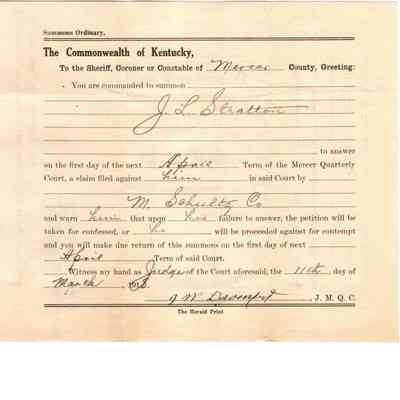 Summons Ordinary.
The Commonwealth of Kentucky,
To the Sheriff, Coroner or Constable of Mercer County, Greeting:
You are commanded to summon
J. L. Stratton
to answer
on the first day of the next April Term of the Mercer Quarterly
Court, a claim filed against him in said Court by
M. Schultz Co
and warn him that upon his failure to answer, the petition will be
taken for confessed, or he will be proceeded against for contempt
and you will make due return of this summons on the first day of next
April Term of said Court.
Witness my hand as Judge of the Court aforesaid, the 11th day of
March
J W Davenport, J. M. Q. C.
The Herald Print